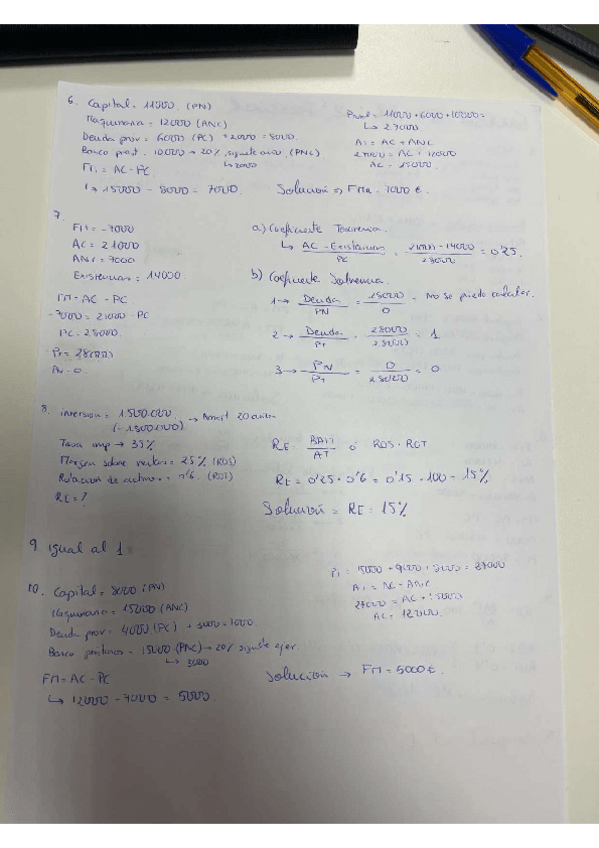 6. Capital = 11000. (PN)
Maquinaria = 12000 (ANC)
Deuda prov = 6000 (PC) + 2000 = 8000.
Banco prest. 10.000 → 20% siguiente año. (PNC)
↳ 2000
FM = AC - PC.
↳ 15000 - 8000 = 7000.
Solución ⇒ FM = 7000 €.
= 11000 + 6000 + 10000 =
↳ 27000
AT = AC + ANC
27000 = AC + 12000
AC = 15000.
7.
FM = -7000
AC = 21000
ANC = 7000
Existencias = 14000.
FM = AC - PC.
-7000 = 21000 - PC
PC = 28000.
PT = 28000
PN = 0.
a) Coeficiente Tesorería.
↳ AC - Existencias / PC = 21000 - 14000 / 28000 = 0'25.
b) Coeficiente Solvencia.
1 → Deuda / PN = 28000 / 0 = No se puede calcular.
2 → Deuda / PT = 28000 / 28000 = 1
3 → PN / PT = 0 / 28000 = 0
8. inversión = 1500.000
(-1.500.000) → Amort 20 años
Tasa imp → 35%
Margen sobre ventas = 25% (ROS)
Rotación de activo = 0'6. (ROT)
RE = ?
RE = BAII / AT ó ROS · ROT
RE = 0'25 · 0'6 = 0'15 · 100 = 15%
Solución = RE = 15%
9 igual al 1
10. Capital = 8000 (PN)
Maquinaria = 15000 (ANC)
Deuda prov = 4000 (PC) + 3000 = 7000.
Banco = 15000 (PNC) → 20% siguiente ejer.
↳ 3000
FM = AC - PC
↳ 12000 - 7000 = 5000.
= 27000
AT = AC + ANC
27000 = AC + 15000
AC = 12000.
Solución → FM = 5000 €.